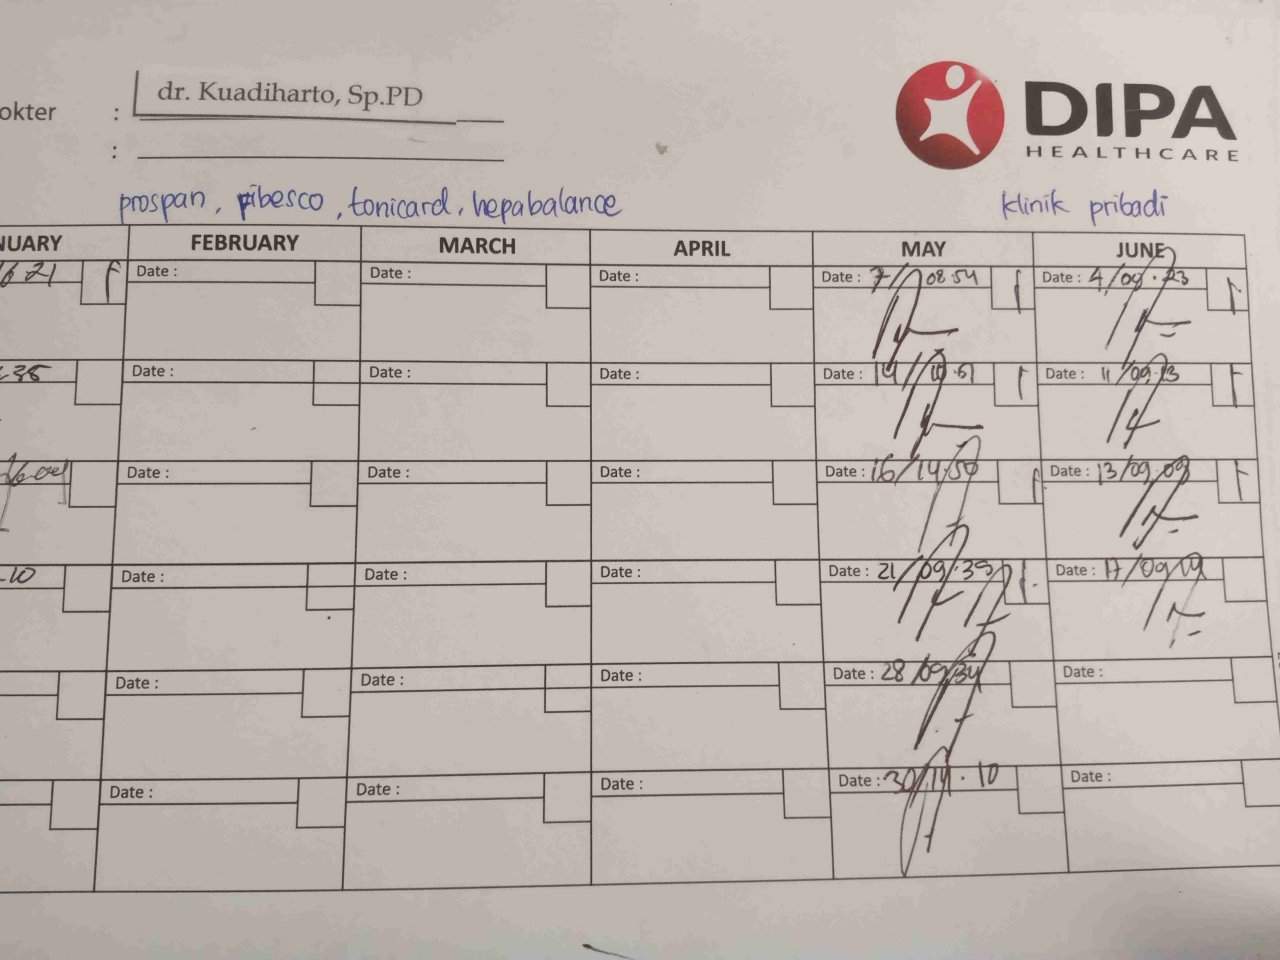 okter : dr. Kuadiharto, Sp.PD
:
DIPA
HEALTHCARE
prospan, ribesco, tonicard, hepabalance
klinik pribadi
NUARY FEBRUARY MARCH APRIL MAY JUNE
21 Date : Date : Date : Date : 7/ 08.54 Date : 4/09.23
.38 Date : Date : Date : Date : 14/10.51 Date : 11/09.13
Date : Date : Date : Date : 16/14.50 Date : 13/09.09
.10 Date : Date : Date : Date : 21/09.39 Date : 17/09.19
Date : Date : Date : Date : 28/09.34 Date :
Date : Date : Date : Date : 30/14.10 Date :